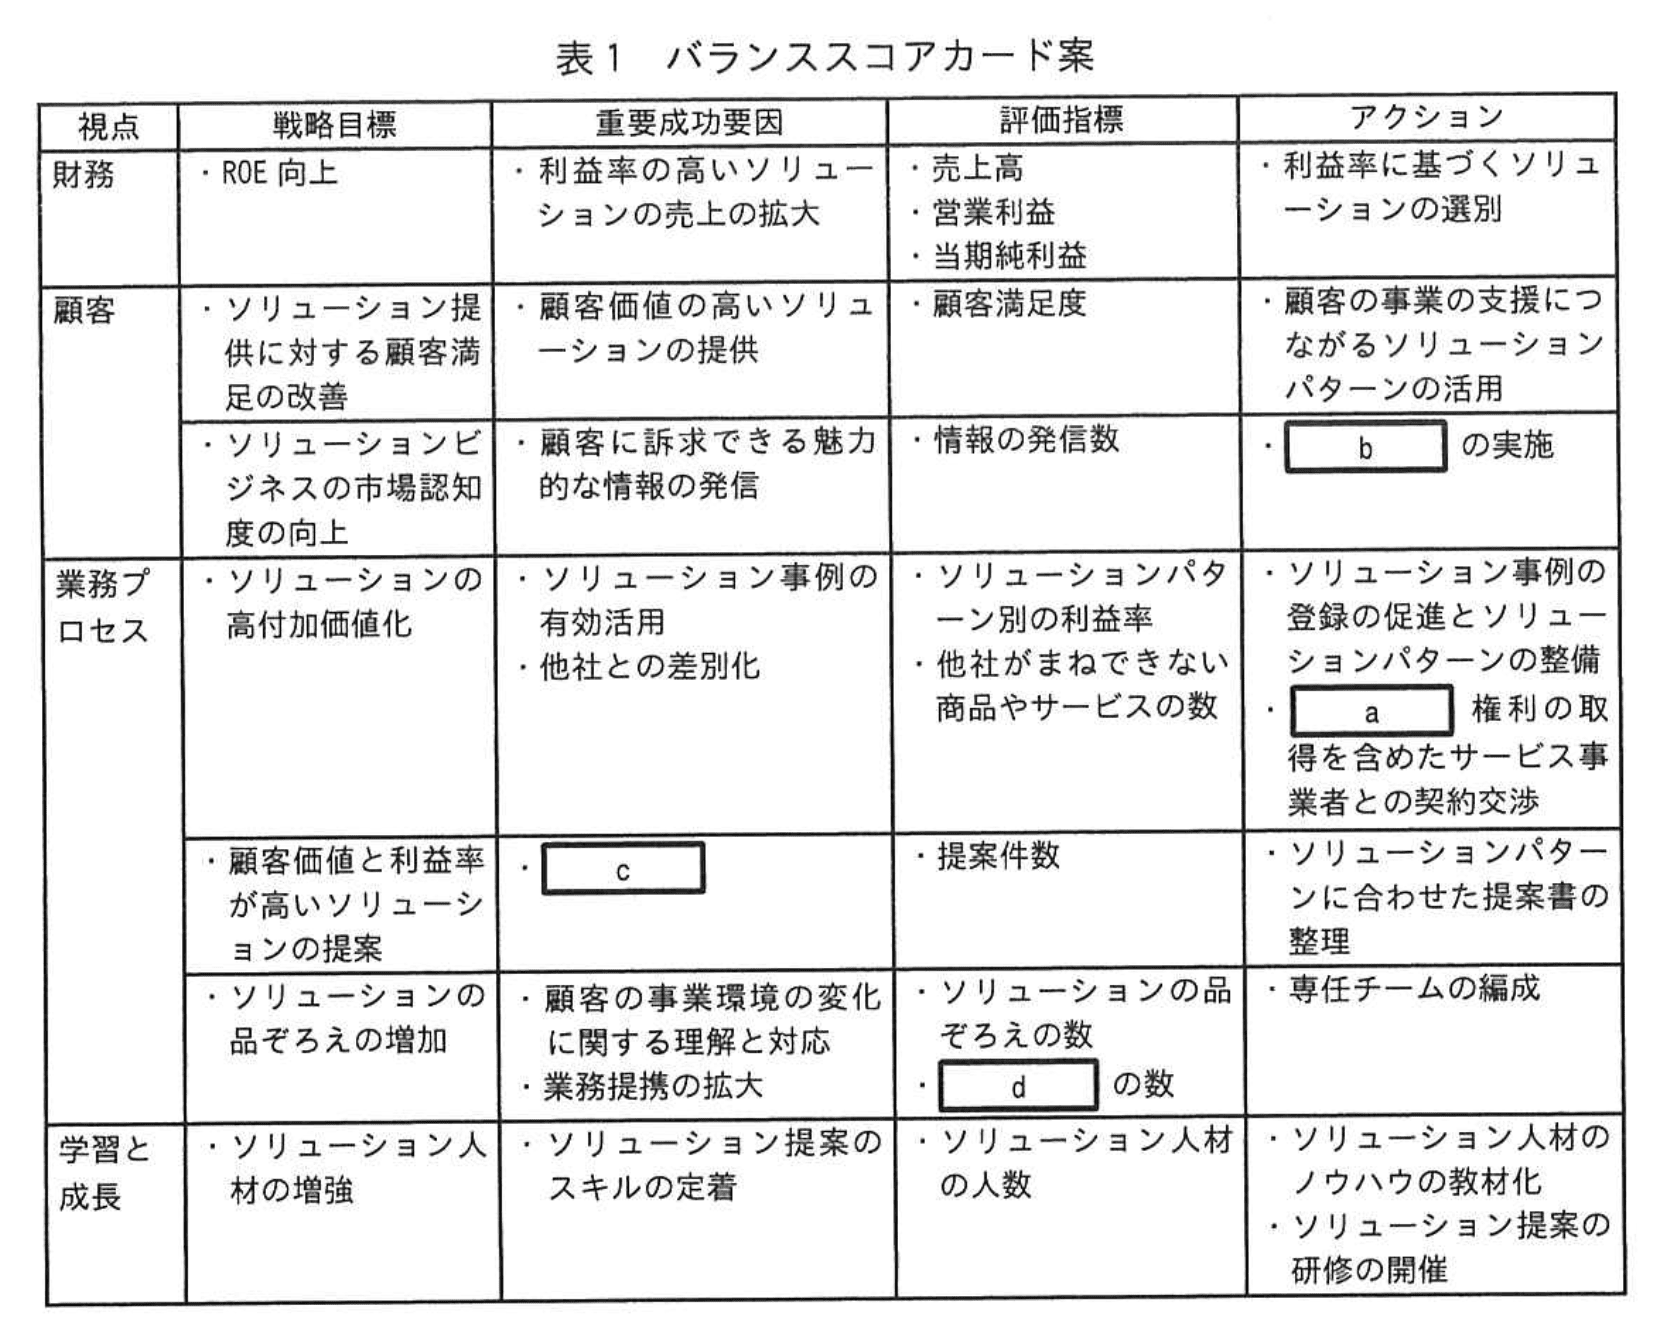 表1 バランススコアカード案
視点 戦略目標 重要成功要因 評価指標 アクション
財務
・ROE 向上
・利益率の高いソリュー
ションの売上の拡大
・売上高
・営業利益
・当期純利益
・利益率に基づくソリュ
ーションの選別
顧客
・ソリューション提
供に対する顧客満
足の改善
・顧客価値の高いソリュ
ーションの提供
・顧客満足度
・顧客の事業の支援につ
ながるソリューション
パターンの活用
・ソリューションビ
ジネスの市場認知
度の向上
・顧客に訴求できる魅力
的な情報の発信
・情報の発信数
・ b の実施
業務プ
ロセス
・ソリューションの
高付加価値化
・ソリューション事例の
有効活用
・他社との差別化
・ソリューションパタ
ーン別の利益率
・他社がまねできない
商品やサービスの数
・ソリューション事例の
登録の促進とソリュー
ションパターンの整備
・ a 権利の取
得を含めたサービス事
業者との契約交渉
・顧客価値と利益率
が高いソリューシ
ョンの提案
・ c
・提案件数
・ソリューションパター
ンに合わせた提案書の
整理
・ソリューションの
品ぞろえの増加
・顧客の事業環境の変化
に関する理解と対応
・業務提携の拡大
・ソリューションの品
ぞろえの数
・ d の数
・専任チームの編成
学習と
成長
・ソリューション人
材の増強
・ソリューション提案の
スキルの定着
・ソリューション人材
の人数
・ソリューション人材の
ノウハウの教材化
・ソリューション提案の
研修の開催